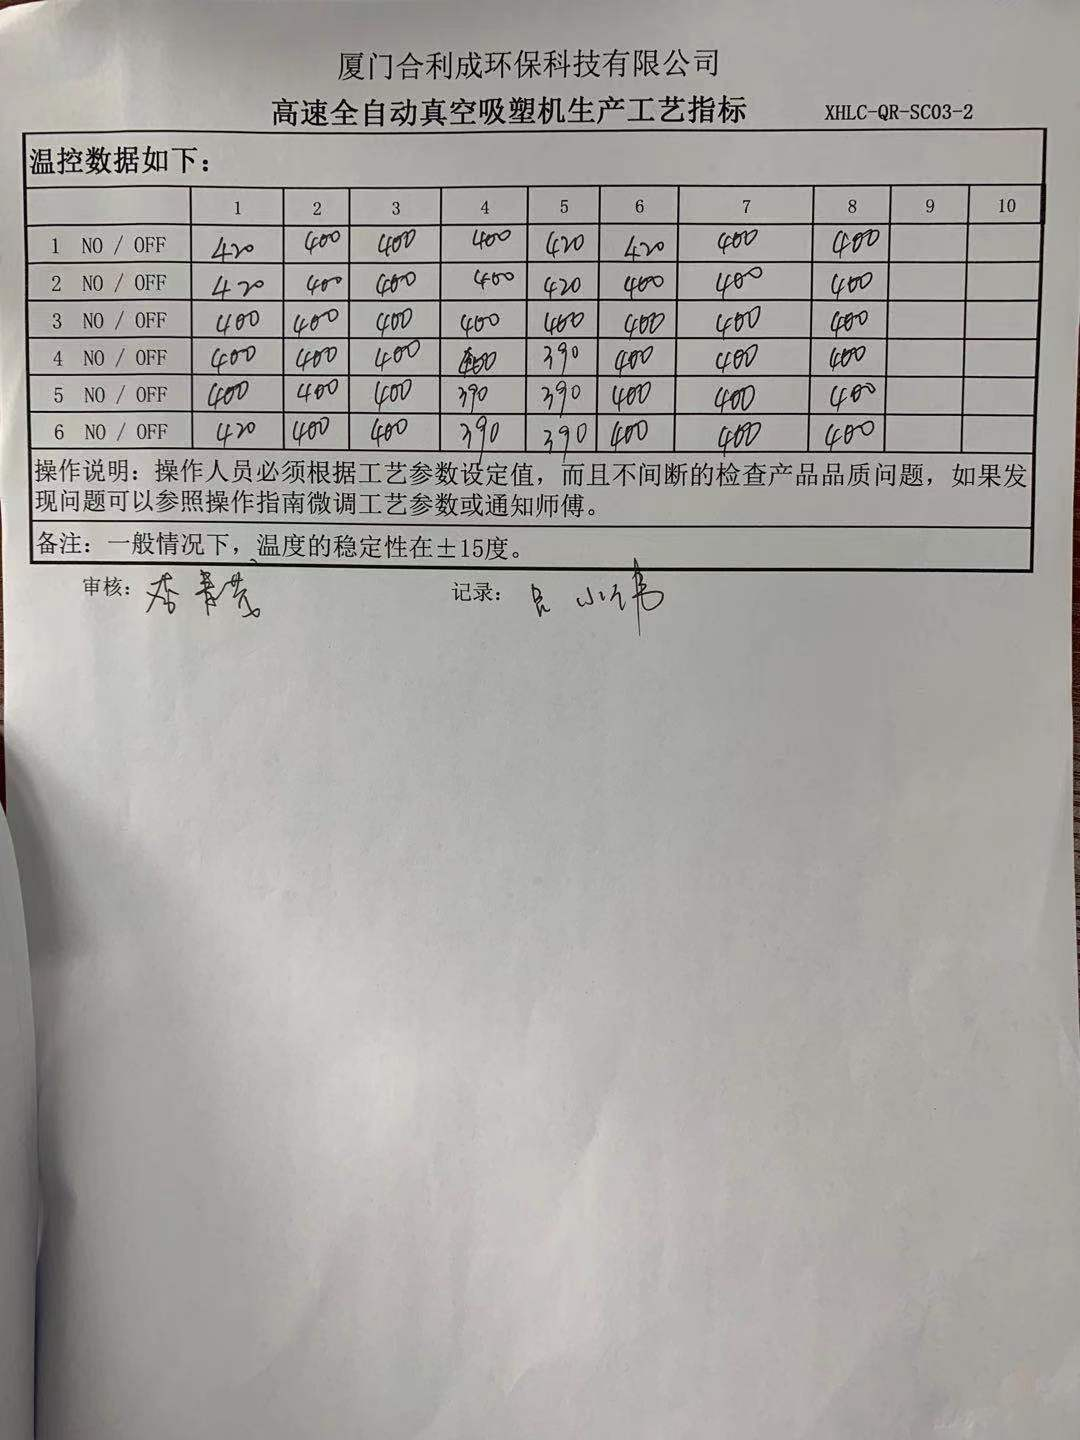 厦门合利成环保科技有限公司
高速全自动真空吸塑机生产工艺指标 XHLC-QR-SC03-2
温控数据如下：
1 2 3 4 5 6 7 8 9 10
1 NO / OFF 420 400 400 400 420 420 400 400
2 NO / OFF 420 400 400 400 420 400 400 400
3 NO / OFF 400 400 400 400 400 400 400 400
4 NO / OFF 400 400 400 400 390 400 400 400
5 NO / OFF 400 400 400 390 390 400 400 400
6 NO / OFF 420 400 400 390 390 400 400 400
操作说明：操作人员必须根据工艺参数设定值，而且不间断的检查产品品质问题，如果发
现问题可以参照操作指南微调工艺参数或通知师傅。
备注：一般情况下，温度的稳定性在±15度。
审核： 记录：